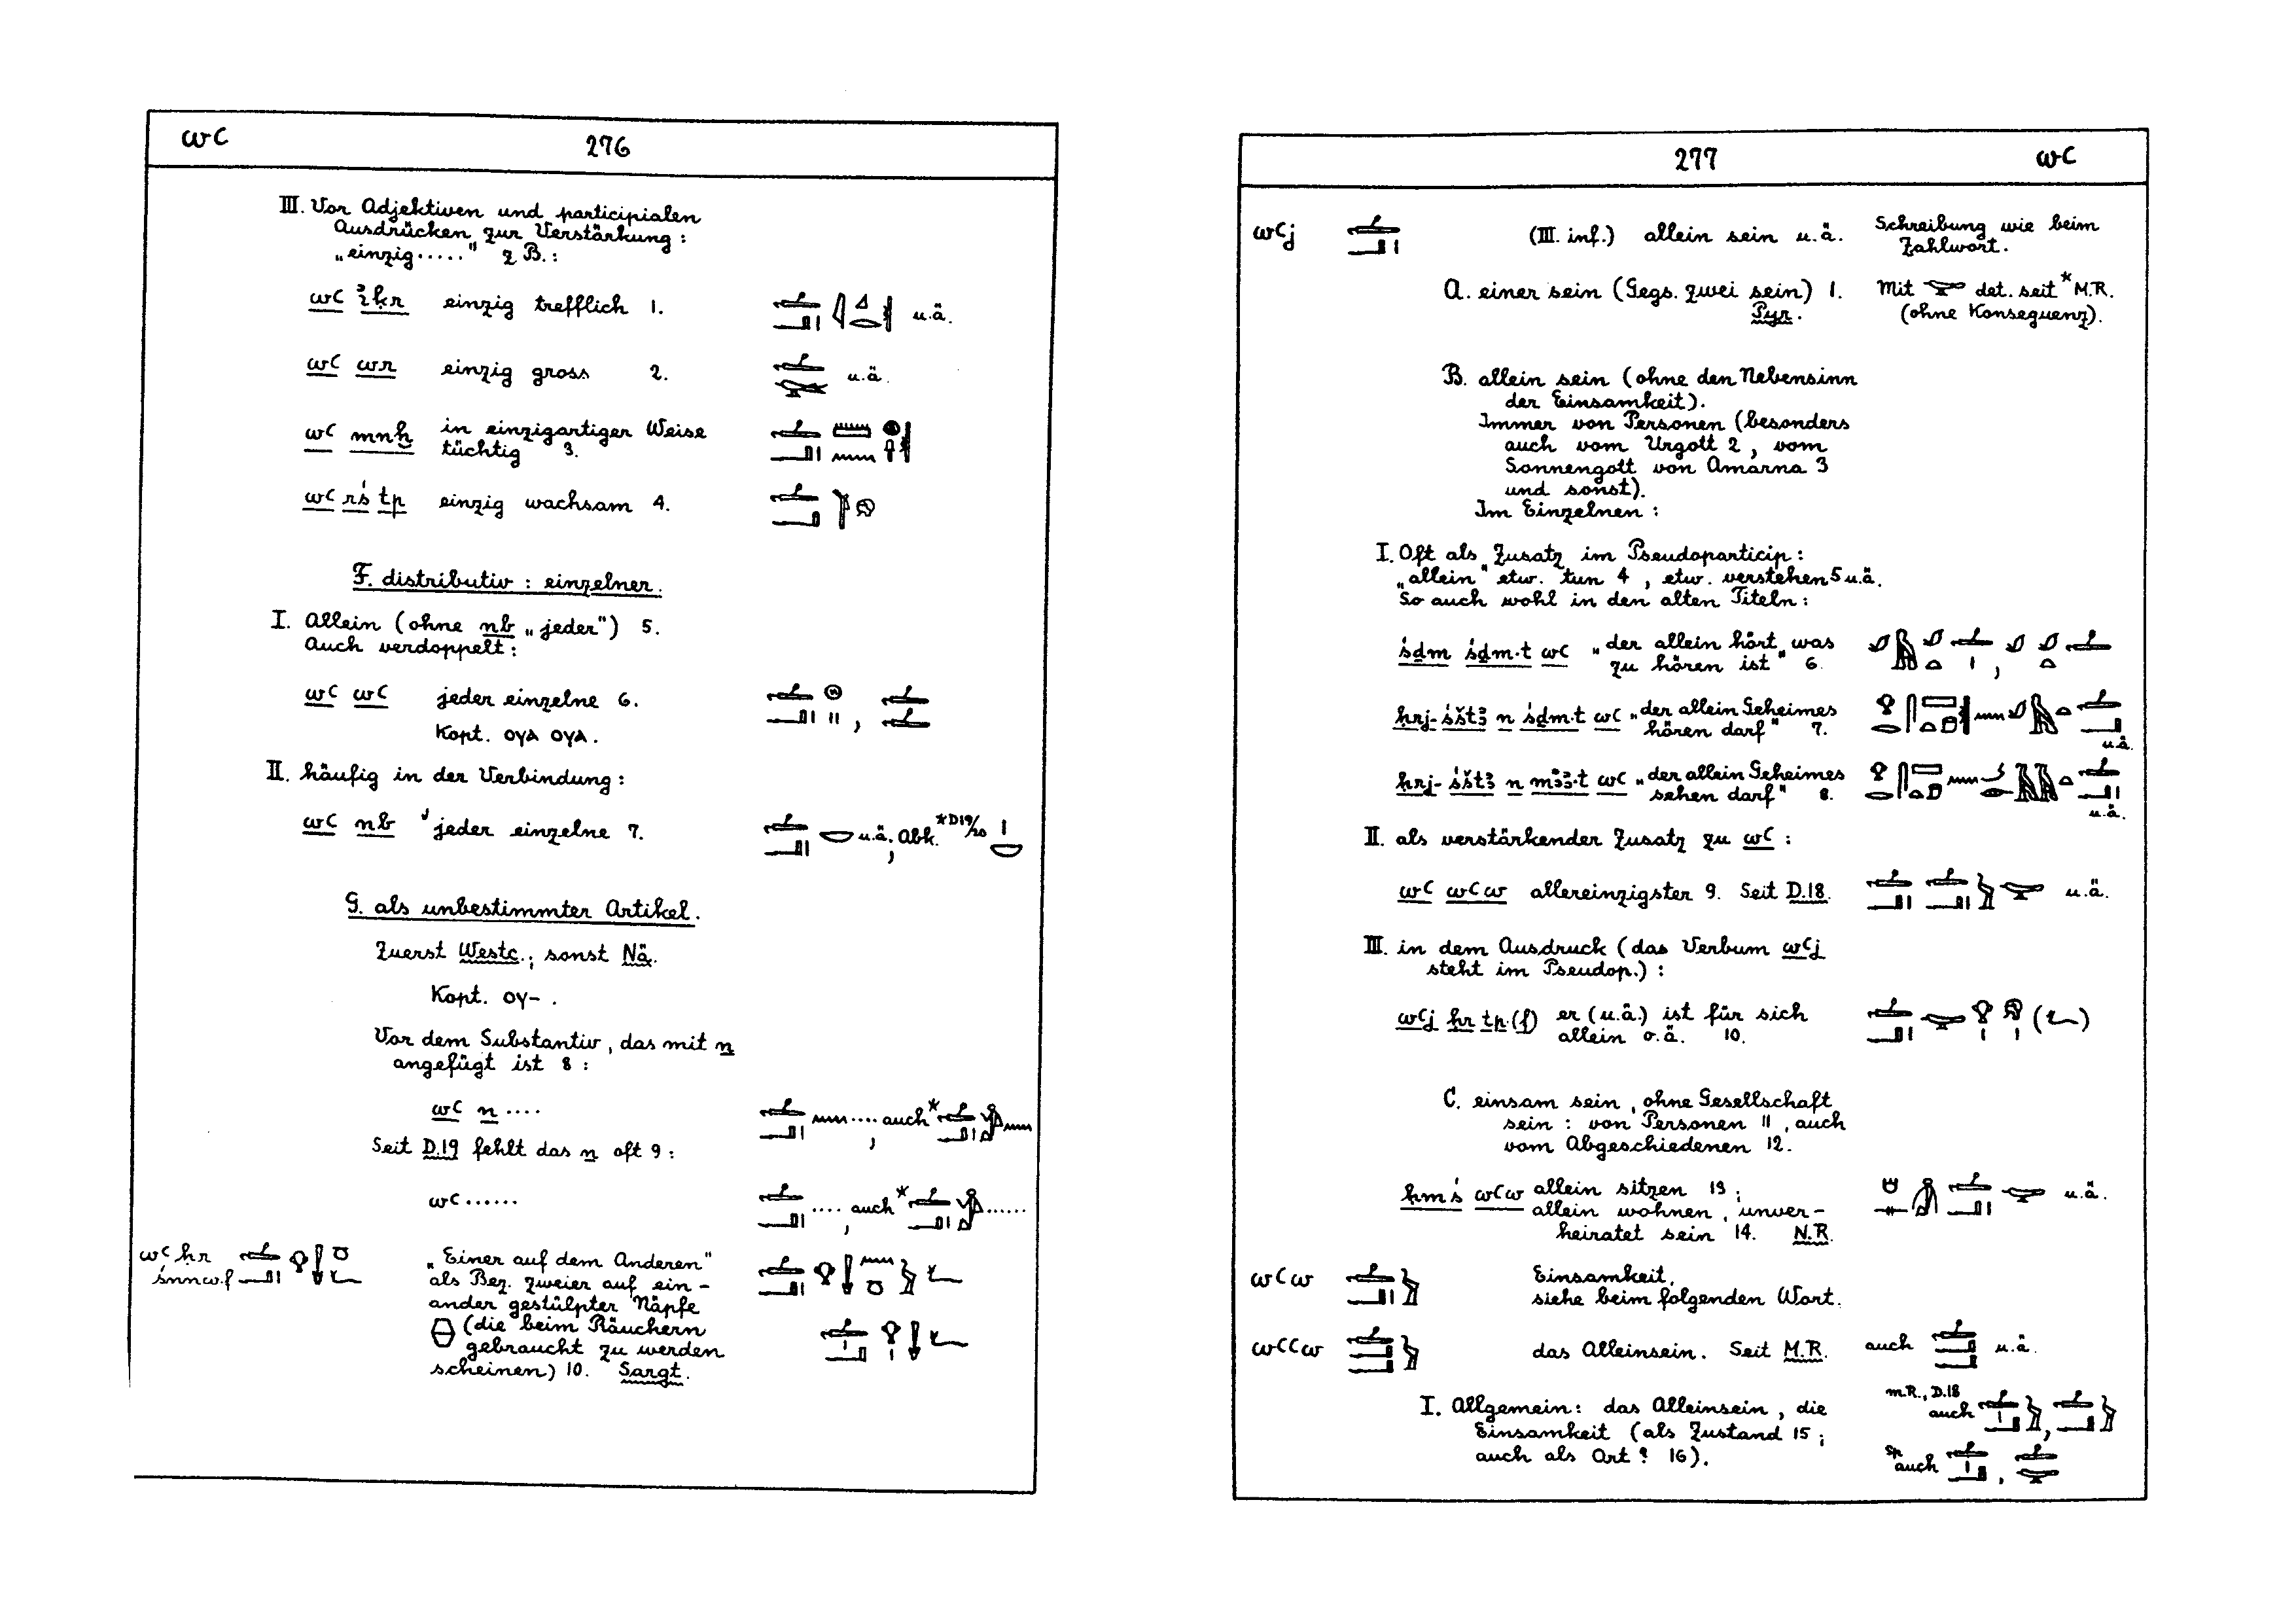 wꜥ 276
III. Vor Adjektiven und participialen
Ausdrücken zur Verstärkung:
„einzig....." z.B.:
wꜥ ı͗ḳr einzig trefflich 1. u.ä.
wꜥ wr einzig gross 2. u.ä.
wꜥ mnḫ in einzigartiger Weise
tüchtig 3.
wꜥ rś tp einzig wachsam 4.
F. distributiv: einzelner.
I. Allein (ohne nb „jeder") 5.
Auch verdoppelt:
wꜥ wꜥ jeder einzelne 6.
Kopt. ⲟⲩⲁ ⲟⲩⲁ.
II. häufig in der Verbindung:
wꜥ nb jeder einzelne 7. u.ä., Abk. *D19/20
G. als unbestimmter Artikel.
Zuerst Westc.; sonst Nä.
Kopt. ⲟⲩ- .
Vor dem Substantiv, das mit n
angefügt ist 8:
wꜥ n .... ...., auch*
Seit D.19 fehlt das n oft 9:
wꜥ ...... ...., auch* ......
wꜥ ḥr
śnnw.f
„Einer auf dem Anderen"
als Bez. zweier auf ein-
ander gestülpter Näpfe
(die beim Räuchern
gebraucht zu werden
scheinen) 10. Sargt.
277 wꜥ
wꜥj (III. inf.) allein sein u.ä. Schreibung wie beim
Zahlwort.
A. einer sein (Gegs. zwei sein) 1. Mit det. seit *M.R.
Pyr. (ohne Konsequenz).
B. allein sein (ohne den Nebensinn
der Einsamkeit).
Immer von Personen (besonders
auch vom Urgott 2, vom
Sonnengott von Amarna 3
und sonst).
Im Einzelnen:
I. Oft als Zusatz im Pseudoparticip:
„allein" etw. tun 4, etw. verstehen 5 u.ä.
So auch wohl in den alten Titeln:
śḏm śḏm.t wꜥ „der allein hört, was
zu hören ist" 6.
ḥrj-śštꜣ n śḏm.t wꜥ „der allein Geheimes
hören darf" 7. u.ä.
ḥrj-śštꜣ n mꜣꜣ.t wꜥ „der allein Geheimes
sehen darf" 8. u.ä.
II. als verstärkender Zusatz zu wꜥ:
wꜥ wꜥw allereinzigster 9. Seit D.18. u.ä.
III. in dem Ausdruck (das Verbum wꜥj
steht im Pseudop.):
wꜥj ḥr tp.(f) er (u.ä.) ist für sich
allein o.ä. 10.
C. einsam sein, ohne Gesellschaft
sein: von Personen 11, auch
vom Abgeschiedenen 12.
ḥmś wꜥw allein sitzen 13; u.ä.
allein wohnen, unver-
heiratet sein 14. N.R.
wꜥw Einsamkeit.
siehe beim folgenden Wort.
wꜥꜥw das Alleinsein. Seit M.R. auch u.ä.
I. Allgemein: das Alleinsein, die
Einsamkeit (als Zustand 15;
auch als Ort? 16).
M.R., D.18
auch
Sp.
auch